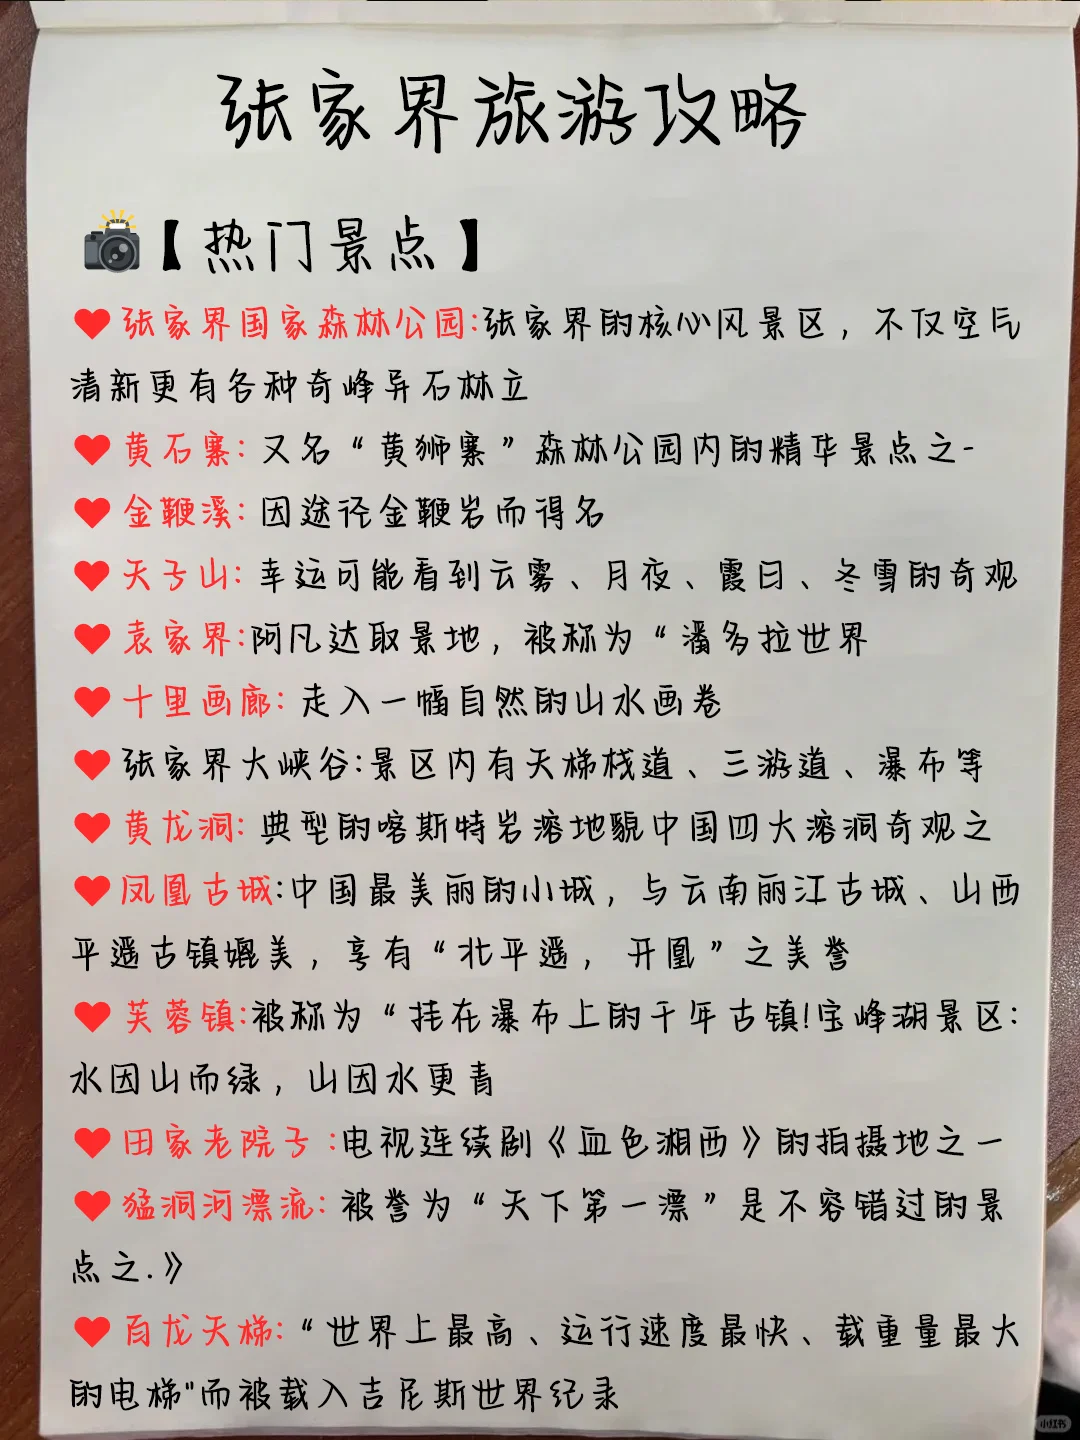 张家界旅游攻略
【热门景点】
张家界国家森林公园:张家界的核心风景区，不仅空气
清新更有各种奇峰异石林立
黄石寨：又名“黄狮寨”森林公园内的精华景点之-
金鞭溪：因途径金鞭岩而得名
天子山：幸运可能看到云雾、月夜、霞日、冬雪的奇观
袁家界:阿凡达取景地，被称为“潘多拉世界
十里画廊：走入一幅自然的山水画卷
张家界大峡谷:景区内有天梯栈道、三游道、瀑布等
黄龙洞：典型的喀斯特岩溶地貌中国四大溶洞奇观之
凤凰古城:中国最美丽的小城，与云南丽江古城、山西
平遥古镇媲美，享有“北平遥，开凰”之美誉
芙蓉镇:被称为“挂在瀑布上的千年古镇!宝峰湖景区:
水因山而绿，山因水更青
田家老院子:电视连续剧《血色湘西》的拍摄地之一
猛洞河漂流：被誉为“天下第一漂”是不容错过的景
点之.》
百龙天梯：“世界上最高、运行速度最快、载重量最大
的电梯"而被载入吉尼斯世界纪录
小红书